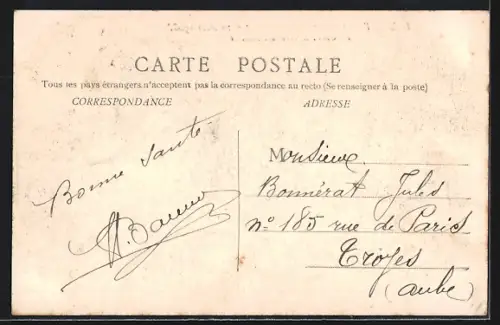 CARTE POSTALE
Tous les pays étrangers n'acceptent pas la correspondance au recto (Se renseigner à la poste)
CORRESPONDANCE
ADRESSE
Bonne santé
Monsieur
Bonnérat Jules
n° 185 rue de Paris
Troyes
(Aube)